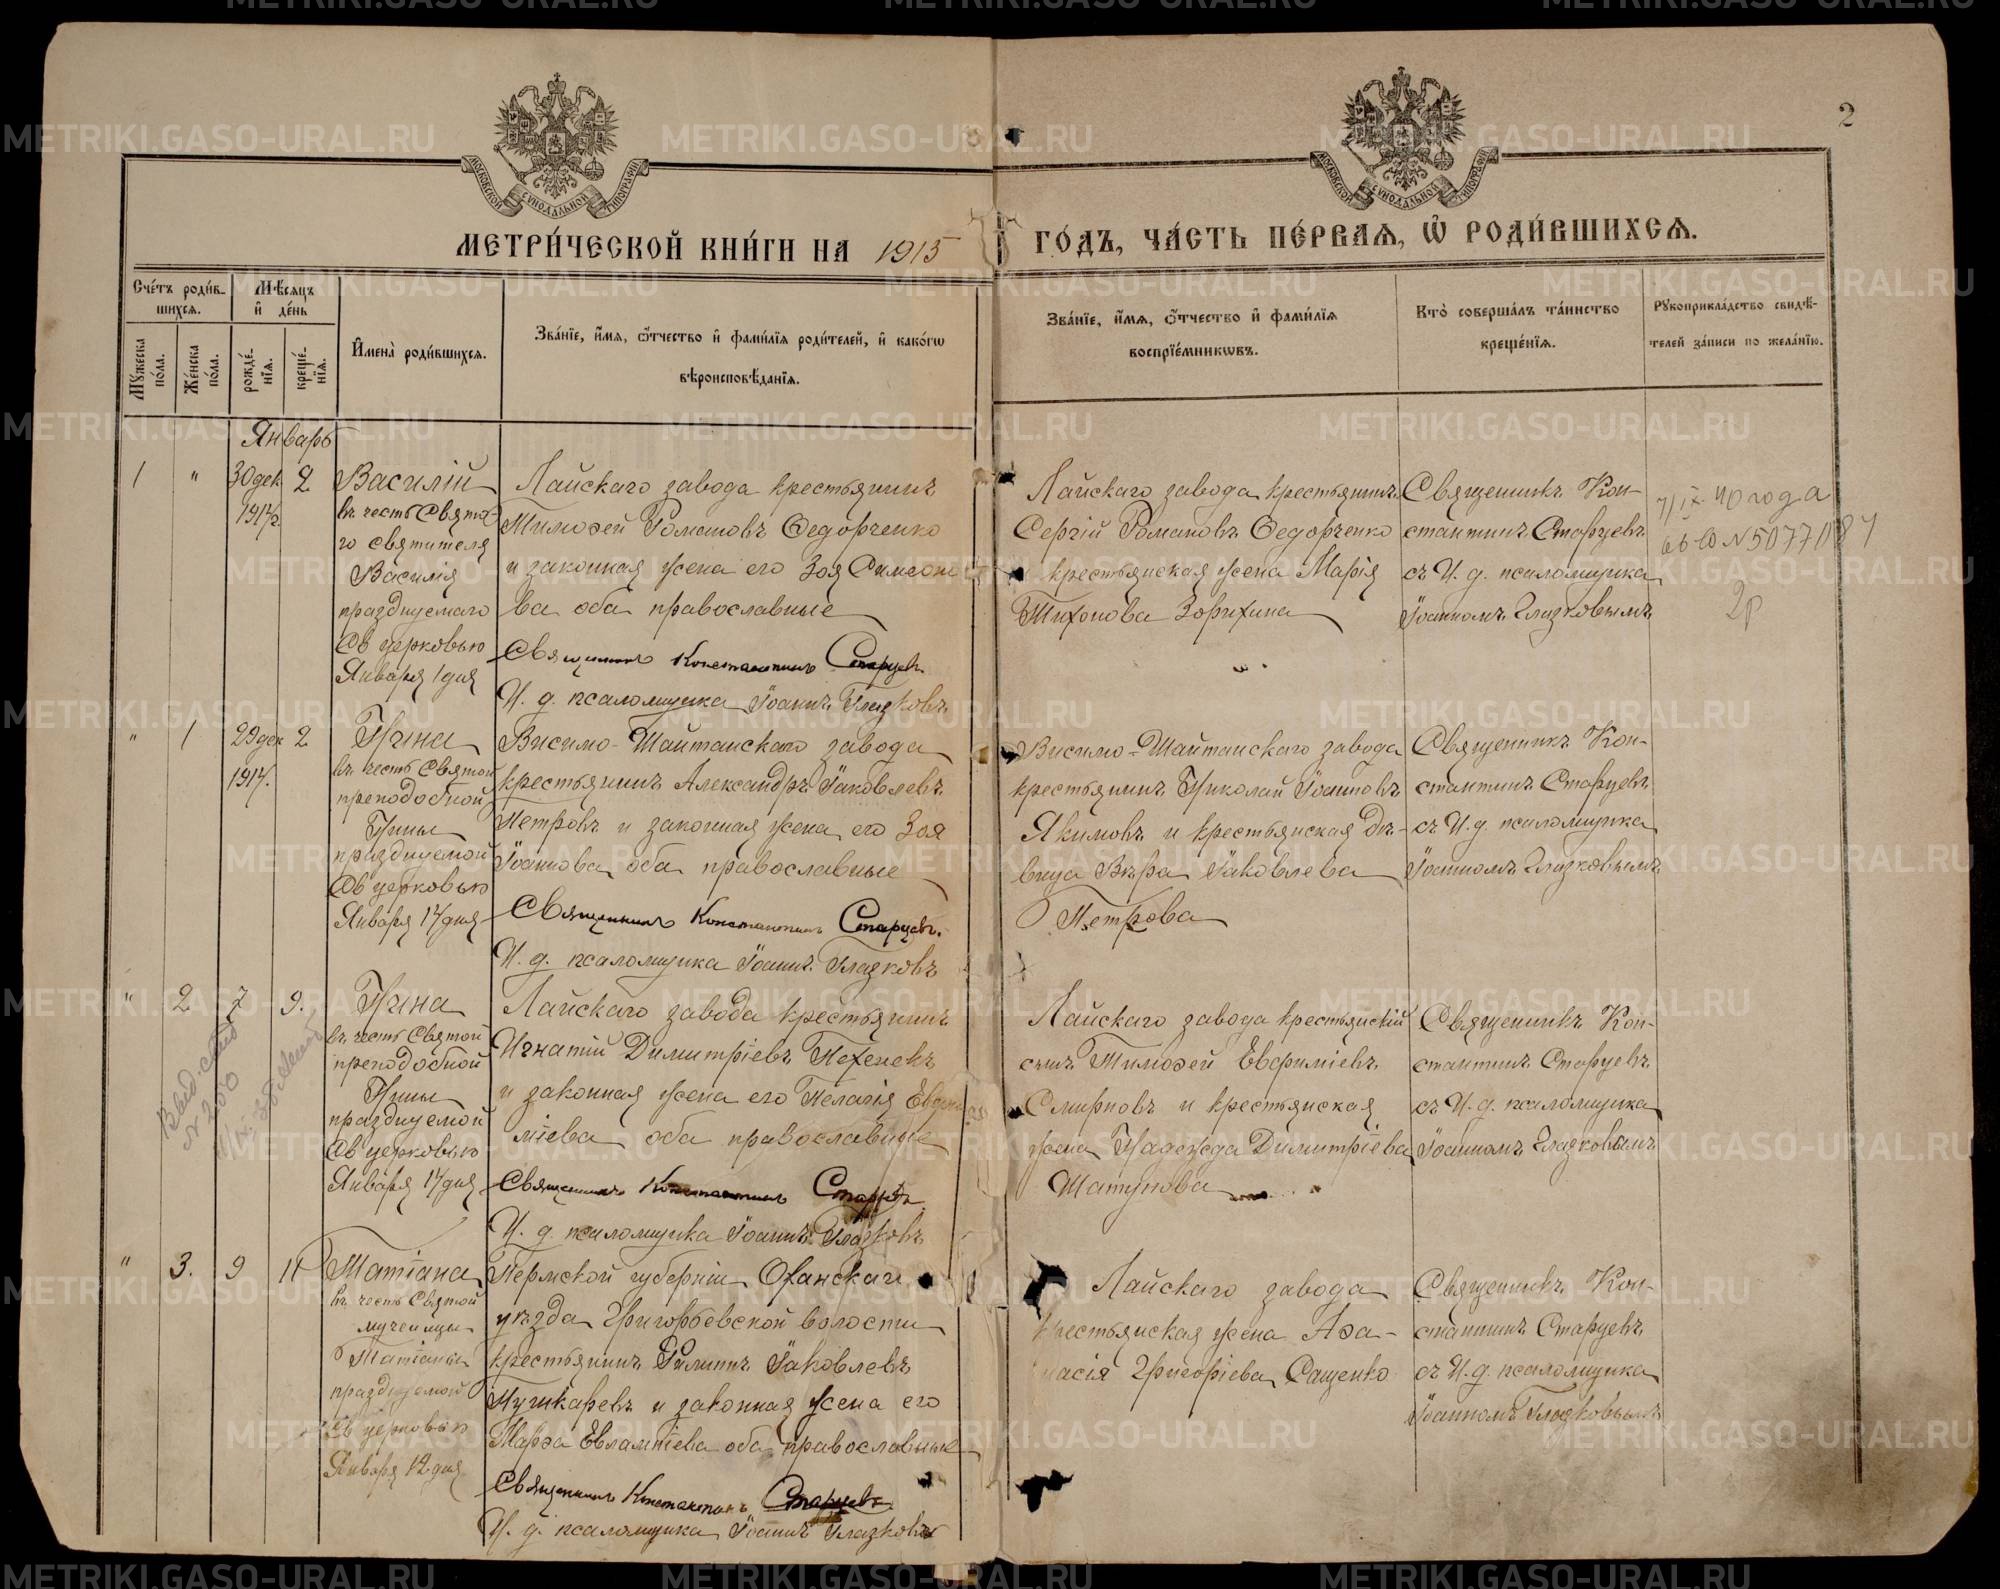 2
МОСКОВСКОЙ СѴНОДАЛЬНОЙ ТИПОГРАФІИ
МОСКОВСКОЙ СѴНОДАЛЬНОЙ ТИПОГРАФІИ
МЕТРИ́ЧЕСКОЙ КНИ́ГИ НА 1915 ГО́ДЪ, ЧА́СТЬ ПЕ́РВАЯ, Ѽ РОДИ́ВШИХСЯ.
Сче́тъ роди́в-
шихся.
Мѣ́сяцъ
и҆ де́нь
Мꙋ́жеска
по́ла.
Же́нска
по́ла.
рожде́-
нїя.
креще́-
нїя.
И҆мена̀ роди́вшихся.
Зва́нїе, и҆́мя, ѻ҆́тчество и҆ фами́лїя роди́телей, и҆ како́гѡ
вѣроисповѣ́данїя.
Зва́нїе, и҆́мя, ѻ҆́тчество и҆ фами́лїя
воспрїе́мникѡвъ.
Кто̀ соверша́лъ та́инство
креще́нїя.
Рꙋкоприкла́дство свидѣ́-
телей за́писи по жела́нїю.
Январь
1 " 30 дек 2
1914г.
Василій
въ честь Свята-
го святителя
Василія
празднуемаго
Св церковью
Января 1 дня
Лайскаго завода крестьянинъ
Тимофей Романовъ Федорченко
и законная жена его Зоя Симеоно
ва оба православные
Священникъ Константинъ Старцевъ
И. д. псаломщика Іоаннъ Глазковъ
Лайскаго завода крестьянинъ
Сергій Романовъ Федорченко
и крестьянская жена Марія
Тихонова Зорихина
Священникъ Кон-
стантинъ Старцевъ
съ И. д. псаломщика
Іоанномъ Глазковымъ
7/IX 40 года
2р
" 1 29 дек 2
1914.
Нина
въ честь Святой
преподобной
Нины
празднуемой
Св церковью
Января 14 дня
Висимо-Шайтанскаго завода
крестьянинъ Александръ Іаковлевъ
Петровъ и законная жена его Зоя
Іоаннова оба православные
Священникъ Константинъ Старцевъ.
И. д. псаломщика Іоаннъ Глазковъ
Висимо-Шайтанскаго завода
крестьянинъ Николай Іоанновъ
Якимовъ и крестьянская дѣ-
вица Вѣра Іаковлева
Петрова
Священникъ Кон-
стантинъ Старцевъ
съ И. д. псаломщика
Іоанномъ Глазковымъ
" 2 7 9.
Нина
въ честь Святой
преподобной
Нины
празднуемой
Св церковью
Января 14 дня
Лайскаго завода крестьянинъ
Игнатій Димитріевъ
и законная жена его Пелагія
міева оба православные
Священникъ Константинъ Старцевъ
И. д. псаломщика Іоаннъ Глазковъ
Лайскаго завода крестьянскій
сынъ Тимофей Евфиміевъ
Смирновъ и крестьянская
жена Надежда Димитріева
Шатунова
Священникъ Кон-
стантинъ Старцевъ
съ И. д. псаломщика
Іоанномъ Глазковымъ
" 3. 9 11
Татіана
въ честь Святой
мученицы
Татіаны
празднуемой
Св церковью
Января 12 дня
Пермской губерніи Оханскаго
уѣзда Григорьевской волости
крестьянинъ Филиппъ Іаковлевъ
Пушкаревъ и законная жена его
Марфа Евлампіева оба православные
Священникъ Константинъ Старцевъ
И. д. псаломщика Іоаннъ Глазковъ
Лайскаго завода
крестьянская жена Афа-
насія Григоріева Сащенко
Священникъ Кон-
стантинъ Старцевъ
съ И. д. псаломщика
Іоанномъ Глазковымъ
METRIKI.GASO-URAL.RU